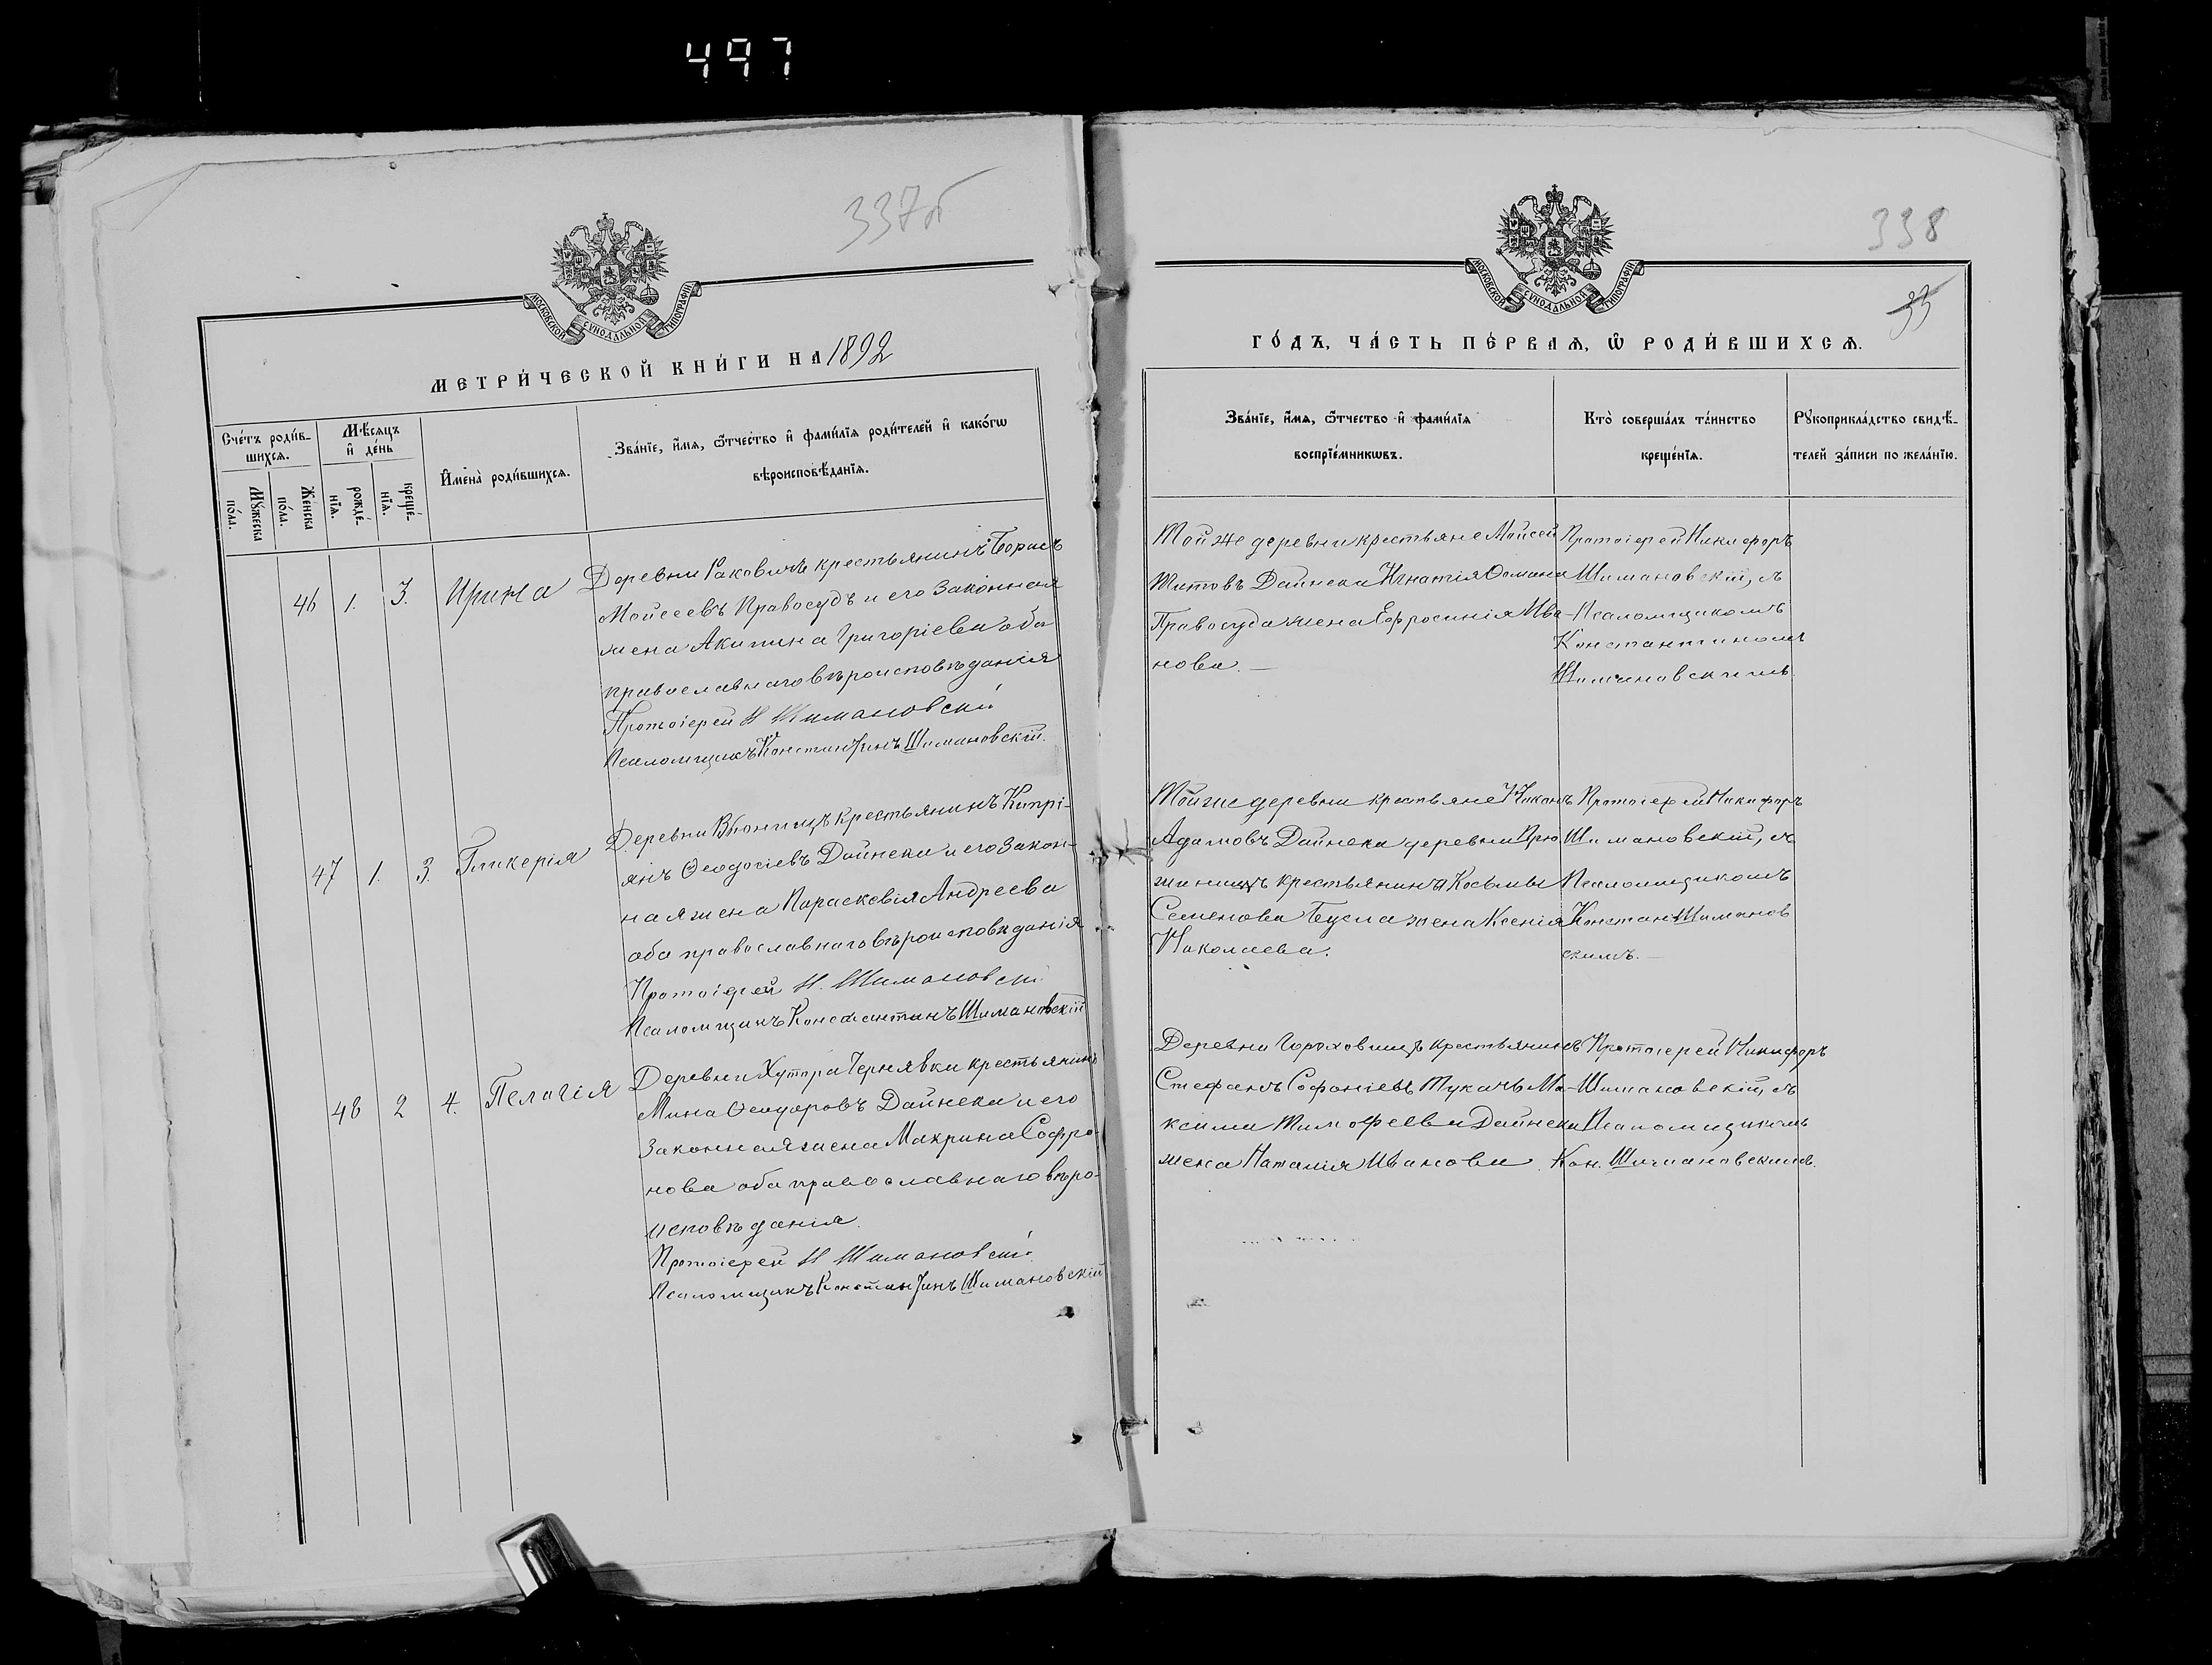 497
337об
МОСКОВСКОЙ СУНОДАЛЬНОЙ ТИПОГРАФІИ
МЕТРИ́ЧЕСКОЙ КНИ́ГИ НА 1892
Сче́тъ роди́в-
шихсѧ.
Мѣ́сѧцъ
и҆ де́нь
И҆мена̀ роди́вшихсѧ.
Зва́нїе, и҆́мѧ, ѻ҆́тчество и҆ фами́лїѧ роди́телей и҆ како́гѡ
вѣроисповѣ́данїѧ.
Мꙋ́жеска
по́ла.
Же́нска
по́ла.
рожде́-
нїѧ.
креще́-
нїѧ.
46 1. 3. Ирина
Деревни Раковичъ крестьянинъ Борисъ
Моисеевъ Правосудъ и его законная
жена Акилина Григоріева оба
православнаго вѣроисповѣданія
Протоіерей Н Шимановскій
Псаломщикъ Константинъ Шимановскій.
47 1. 3. Гликерія
Деревни крестьянинъ Кипрі-
янъ Ѳеодосіевъ Дайнека и его закон-
ная жена Параскевія Андреева
оба православнаго вѣроисповѣданія
Протоіерей Н. Шимановскій
Псаломщикъ Константинъ Шимановскій
48 2 4. Пелагія
Деревни Хутора Чернявки крестьянинъ
Мина Ѳеодоровъ Дайнека и его
законная жена Макрина Софро-
нова оба православнаго вѣро-
исповѣданія.
Протоіерей Н Шимановскій
Псаломщикъ Константинъ Шимановскій
338
33
МОСКОВСКОЙ СУНОДАЛЬНОЙ ТИПОГРАФІИ
ГО́ДЪ, ЧА́СТЬ ПЕ́РВАѦ, Ѡ҆ РОДИ́ВШИХСѦ.
Зва́нїе, и҆́мѧ, ѻ҆́тчество и҆ фами́лїѧ
воспрїе́мникѡвъ.
Кто̀ соверша́лъ та́инство
креще́нїѧ.
Рꙋкоприкла́дство свидѣ́-
телей за́писи по жела́нїю.
Той же деревни крестьяне Мойсей
Титовъ Дайнека Игнатія
Правосуда жена Ефросинія Ива-
нова. —
Протоіерей Никифоръ
Шимановскій, съ
Псаломщикомъ
Константиномъ
Шимановскимъ.
Той же деревни крестьяне Никонъ
Адамовъ Дайнека деревни
крестьянина Косьмы
Семенова Бусла жена Ксенія
Николаева.
Протоіерей Никифоръ
Шимановскій, съ
Псаломщикомъ
Констан Шиманов
скимъ. —
Деревни Гороховищъ крестьянинъ
Стефанъ Софоніевъ Тукачъ Ма-
ксима Тимофеева Дайнеки
жена Наталія Иванова
Протоіерей Никифоръ
Шимановскій, съ
Псаломщикомъ
Кон. Шимановскимъ.